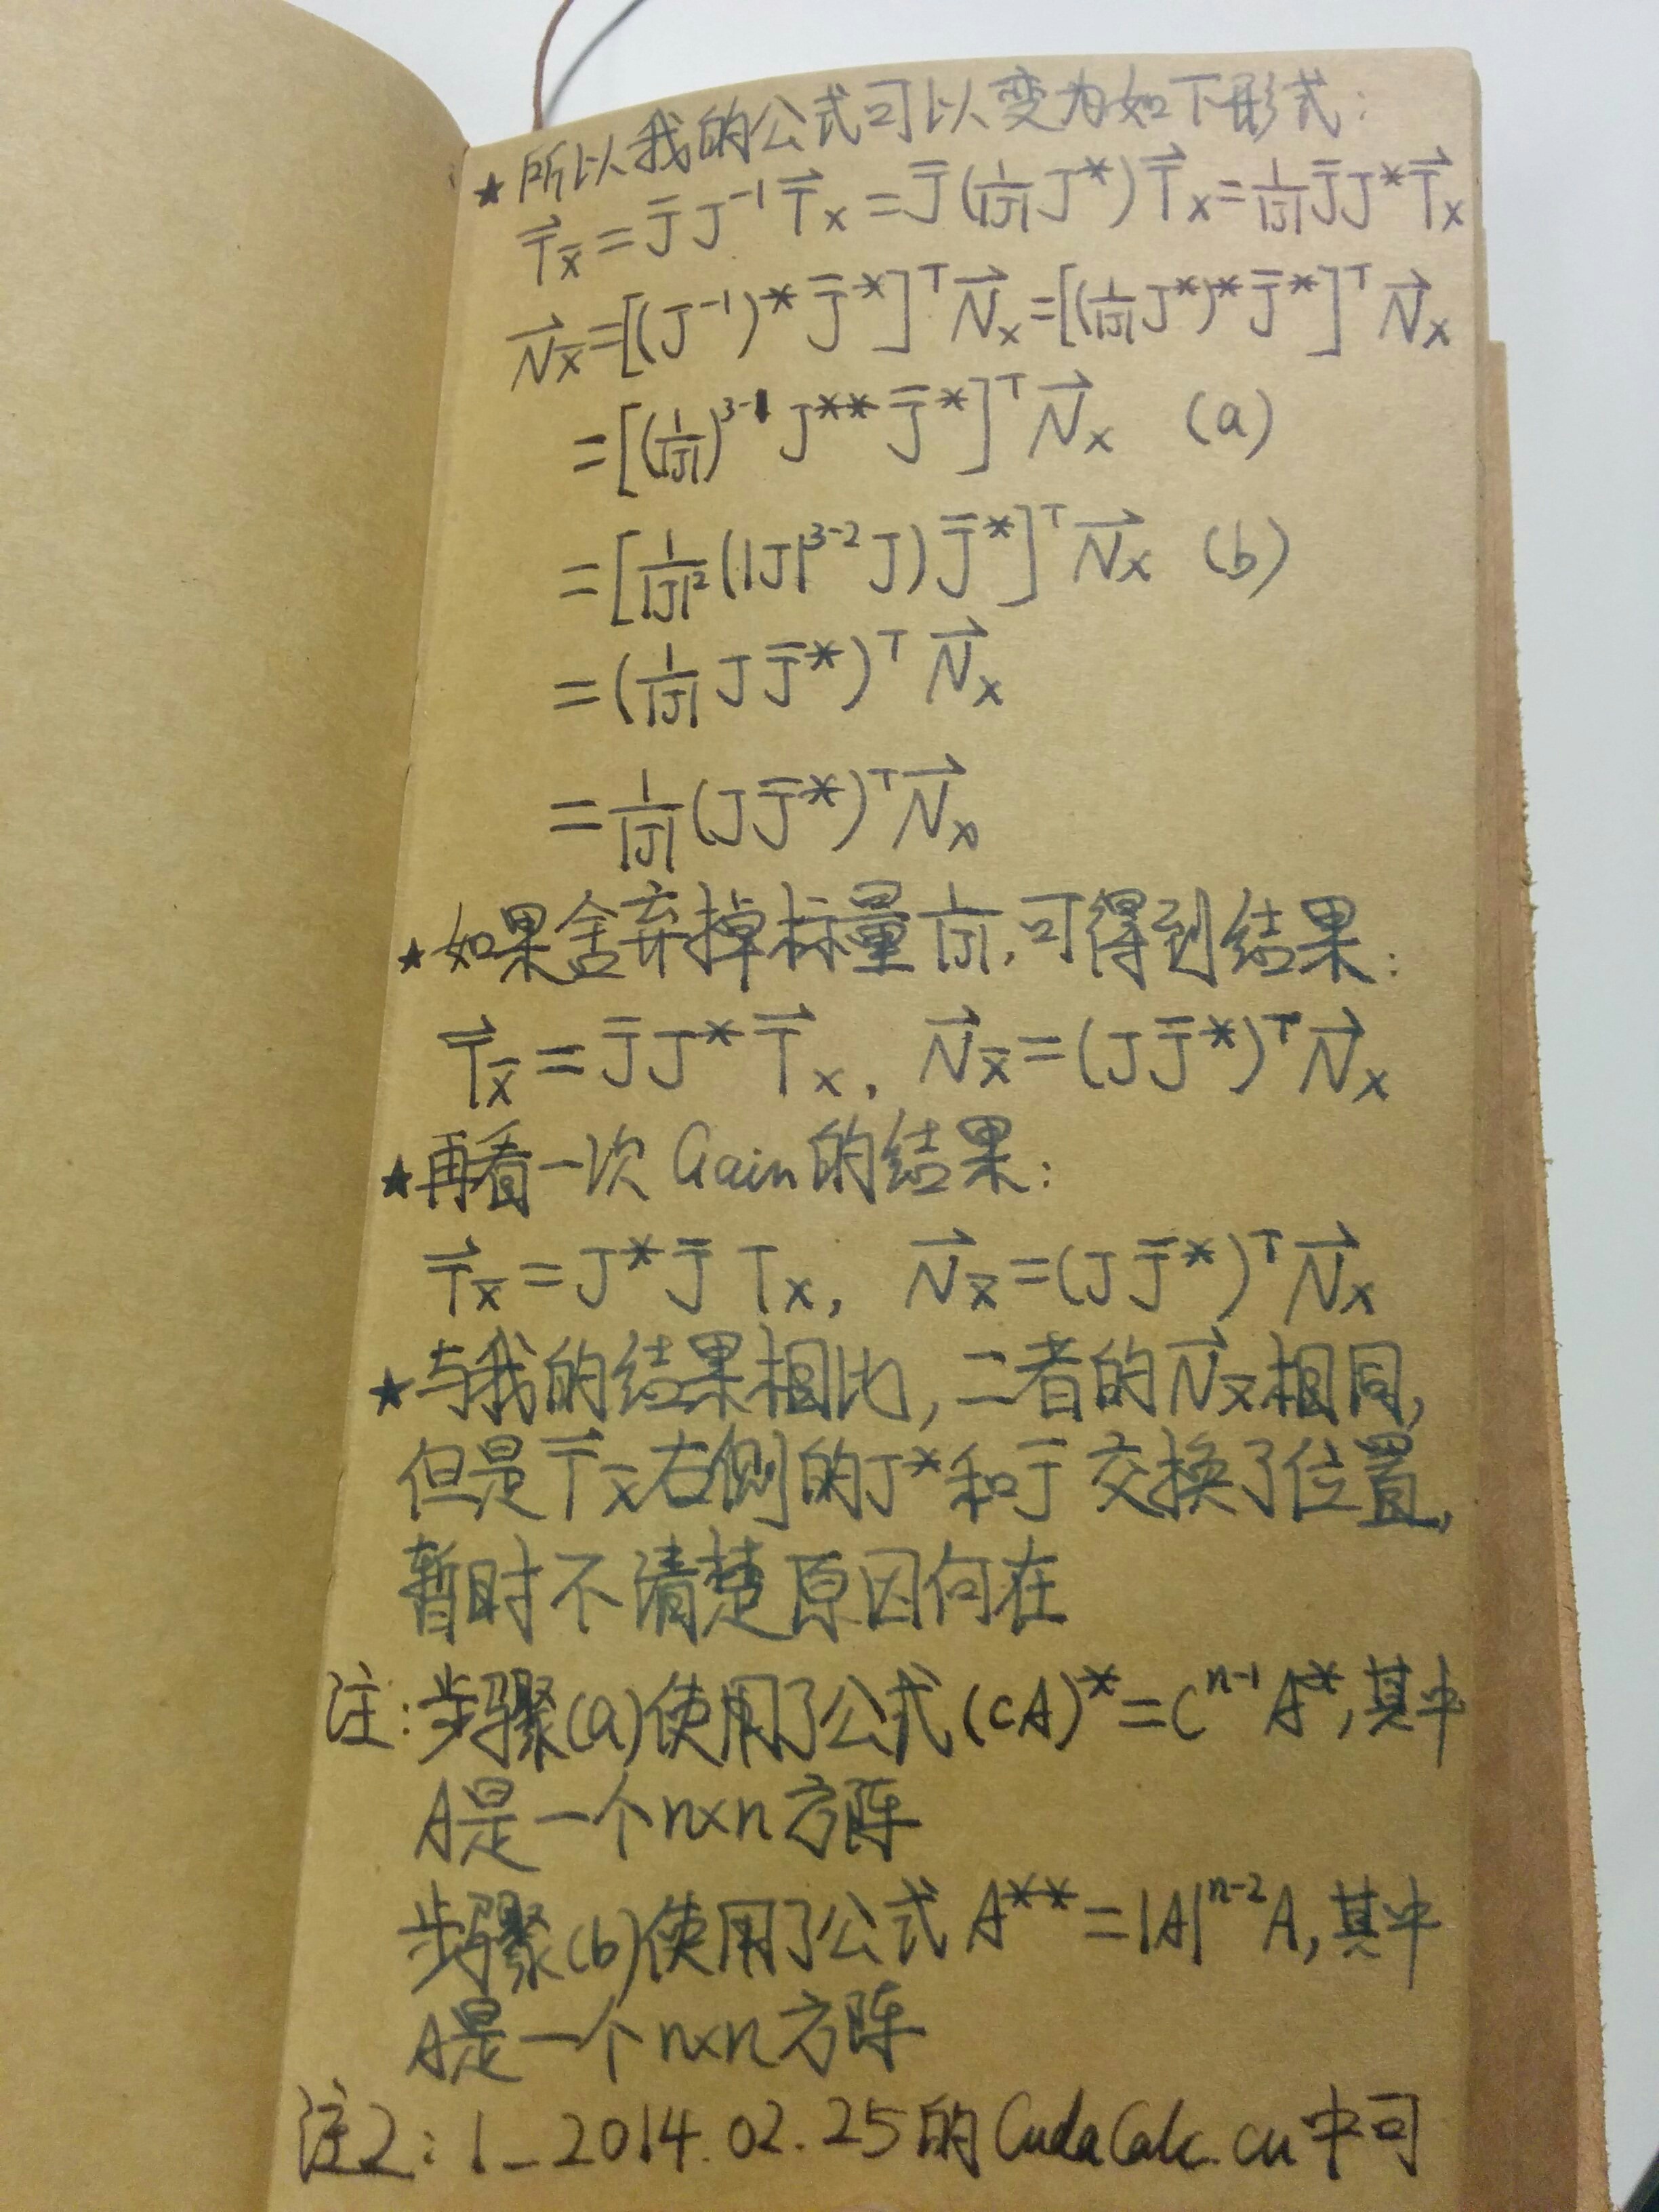 ★所以我的公式可以变为如下形式:
T⃗_x̄ = J̄ J⁻¹ T⃗_x = J̄ (1/|J| J*) T⃗_x = 1/|J| J̄ J* T⃗_x
N⃗_x̄ = [(J⁻¹)* J̄*]ᵀ N⃗_x = [(1/|J| J*)* J̄*]ᵀ N⃗_x
= [(1/|J|)³⁻¹ J** J̄*]ᵀ N⃗_x (a)
= [1/|J|² (|J|³⁻² J) J̄*]ᵀ N⃗_x (b)
= (1/|J| J J̄*)ᵀ N⃗_x
= 1/|J| (J J̄*)ᵀ N⃗_x
★如果舍弃掉标量 1/|J|, 可得到结果:
T⃗_x̄ = J̄ J* T⃗_x, N⃗_x̄ = (J J̄*)ᵀ N⃗_x
★再看一次 Gain 的结果:
T⃗_x̄ = J* J̄ T_x, N⃗_x̄ = (J J̄*)ᵀ N⃗_x
★与我的结果相比,二者的 N⃗_x̄ 相同,
但是 T⃗_x̄ 右侧的 J* 和 J̄ 交换了位置,
暂时不清楚原因何在
注:步骤(a)使用了公式 (cA)* = Cⁿ⁻¹ A*, 其中
A是一个n×n方阵
步骤(b)使用了公式 A** = |A|ⁿ⁻² A, 其中
A是一个n×n方阵
注2: 1_2014.02.25的 CudaCalc.cu 中可